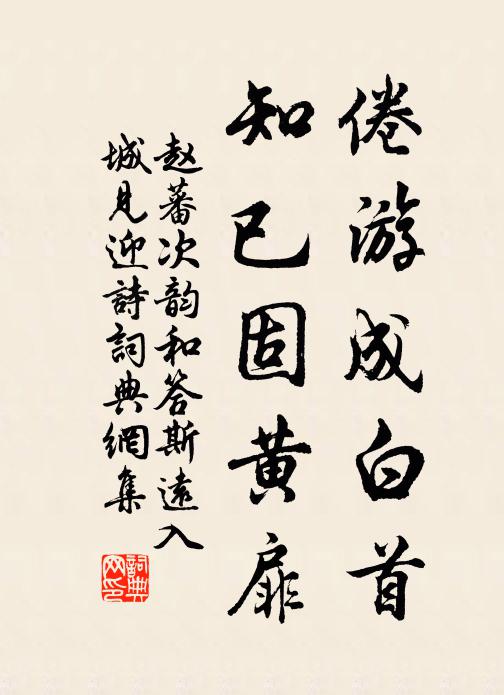 倦游成白首
知已固黄扉
赵蕃次韵和答斯远入
城见迎詩詞典網集
詞典网印